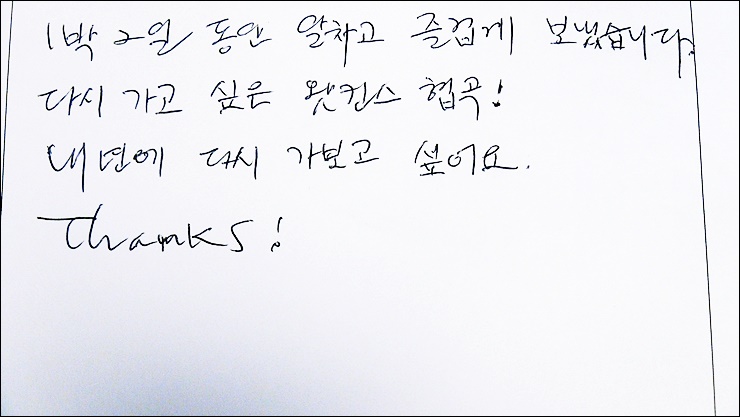 1박 2일 동안 알차고 즐겁게 보냈습니다.
다시 가고 싶은 왓킨스 협곡!
내년에 다시 가보고 싶어요.
Thanks!